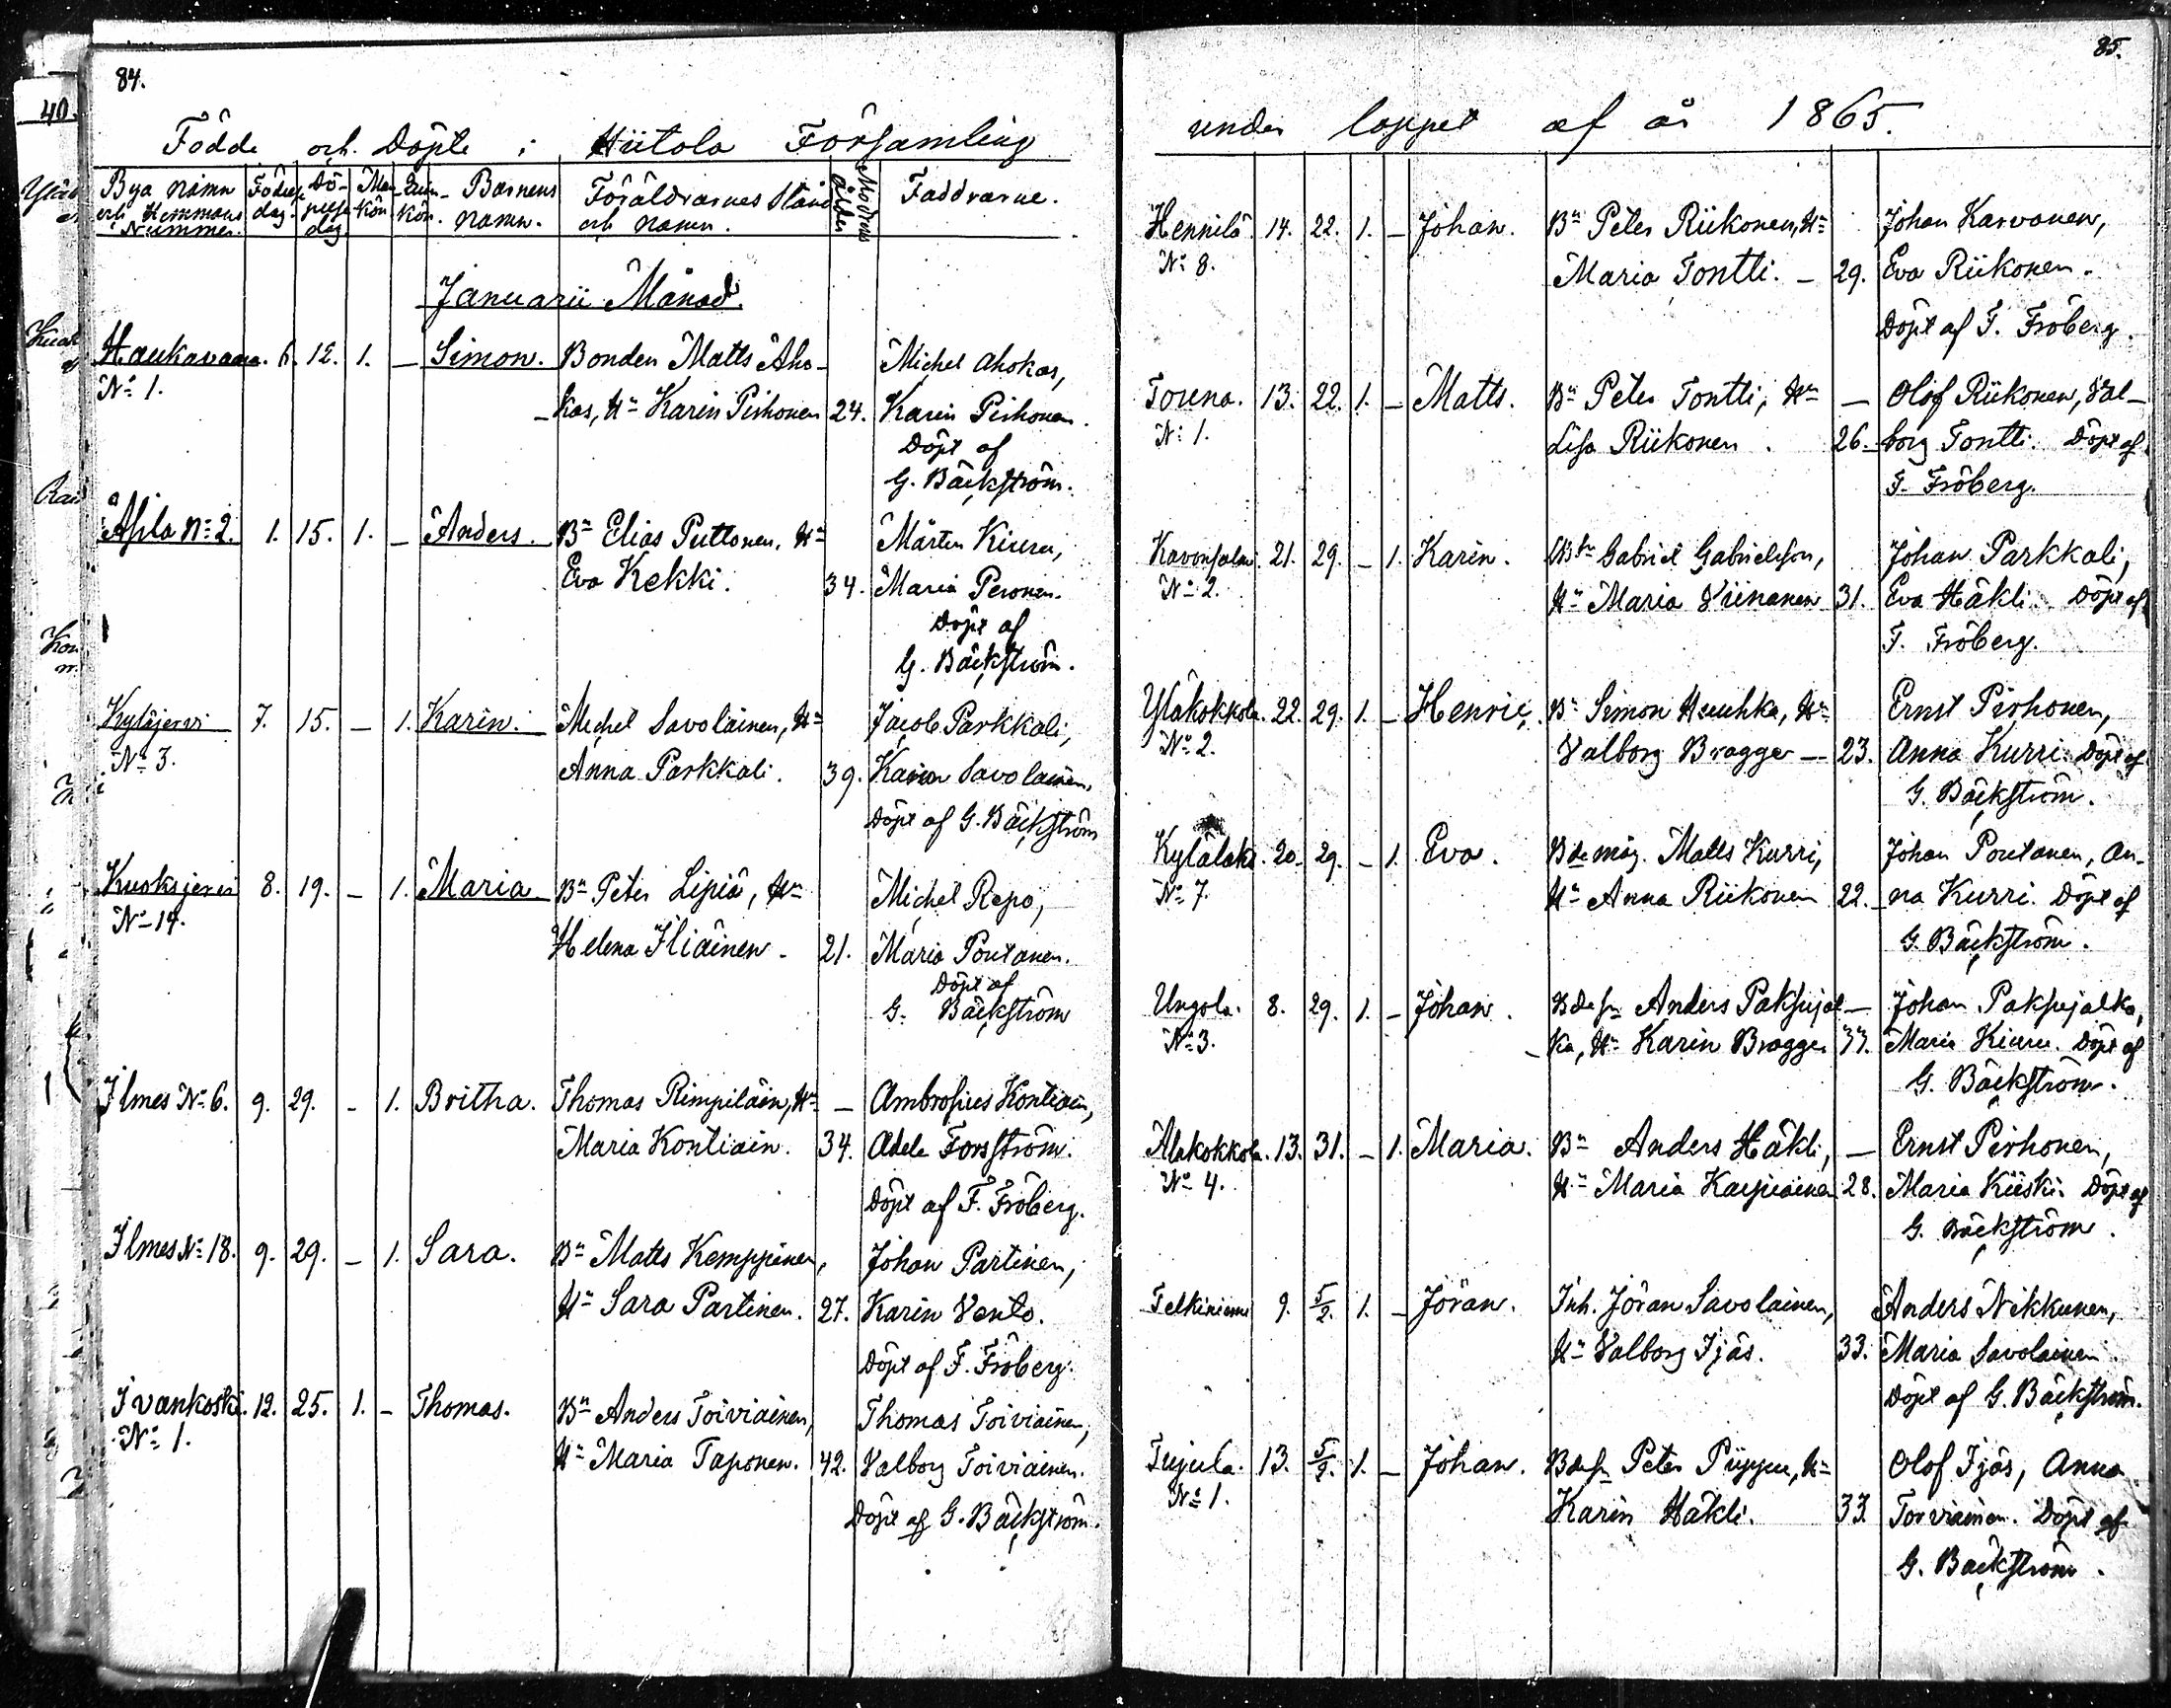 84.
Födde och Döpte i Hiitola Församling
Bya namn och Hemmans Nummer. Födelse dag. Döpelse dag Man kön Qvin kön. Barnens namn. Föräldrarnes Stånd och namn. Modrens ålder Faddrarne.
Januarii Månad.
Haukavaara. 6. 12. 1. – Simon. Bonden Matts Aho- Michel Ahokas,
No 1. -kas, Hu Karin Pirhonen 24. Karin Pirhonen.
Döpt af
G. Bäckström.
Asila No 2. 1. 15. 1. – Anders. Bn Elias Puttonen, Hu Mårten Kiuru,
Eva Kekki. 34. Maria Peronen.
Döpt af
G. Bäckström.
Kyläjervi 7. 15. – 1. Karin. Michel Savolainen, Hu Jacob Parkkali,
No 3. Anna Parkkali. 39. Karin Savolainen.
Döpt af G. Bäckström
Kuoksjervi 8. 19. – 1. Maria Bn Peter Lipiä, Hu Michel Repo,
No 14. Helena Iliäinen - 21. Maria Poutanen.
Döpt af
G. Bäckström
Ilmes No 6. 9. 29. – 1. Britha. Thomas Rimpiläin, Hu – Ambrosius Kontiain,
Maria Kontiain. 34. Adele Forsström.
Döpt af F. Fröberg.
Ilmes No 18. 9. 29. – 1. Sara. Bn Matts Kemppinen, Johan Partinen,
Hu Sara Partinen. 27. Karin Vento.
Döpt af F. Fröberg.
Ivankoski. 12. 25. 1. – Thomas. Bn Anders Toiviainen, Thomas Toiviainen,
No 1. Hu Maria Taponen. 42. Valborg Toiviainen.
Döpt af G. Bäckström.
85.
under loppet af år 1865.
Hennilä 14. 22. 1. – Johan. Bn Peter Riikonen, Hu Johan Karvonen,
No 8. Maria Tontti. – 29. Eva Riikonen.
Döpt af F. Fröberg.
Touna. 13. 22. 1. – Matts. Bn Peter Tontti, Hu – Olof Riikonen, Val-
No 1. Lisa Riikonen. 26. borg Tontti. Döpt af
F. Fröberg.
Kavonsalmi. 21. 29. – 1. Karin. Gabriel Gabrielsson, Johan Parkkali,
No 2. Hu Maria Viinanen 31. Eva Häkli. Döpt af
F. Fröberg.
Yläkokkola. 22. 29. 1. – Henric. Bn Simon Huuhka, Hu Ernst Pirhonen,
No 2. Valborg Bragge – 23. Anna Kurri. Döpt af
G. Bäckström.
Kylälaks. 20. 29. – 1. Eva. Bdemåg. Matts Kurri, Johan Poutanen, An-
No 7. Hu Anna Riikonen 22. na Kurri. Döpt af
G. Bäckström.
Ungola. 8. 29. 1. – Johan. Bdesn Anders Paksujal – Johan Paksujalka,
No 3. -ka, Hu Karin Bragge 33. Maria Kiuru. Döpt af
G. Bäckström.
Alakokkola. 13. 31. – 1. Maria. Bn Anders Häkli, – Ernst Pirhonen,
No 4. Hu Maria Karpiainen 28. Maria Kiiski. Döpt af
G. Bäckström.
Telkiniemi 9. 5/2. 1. – Jöran. Inh. Jöran Savolainen, Anders Nikkunen,
Hu Valborg Ijäs. 33. Maria Savolainen.
Döpt af G. Bäckström.
Tiujula. 13. 5/2. 1. – Johan. Bdesn Peter Piippu, Hu Olof Ijäs, Anna
No 1. Karin Häkli. 33. Torviainen. Döpt af
G. Bäckström.